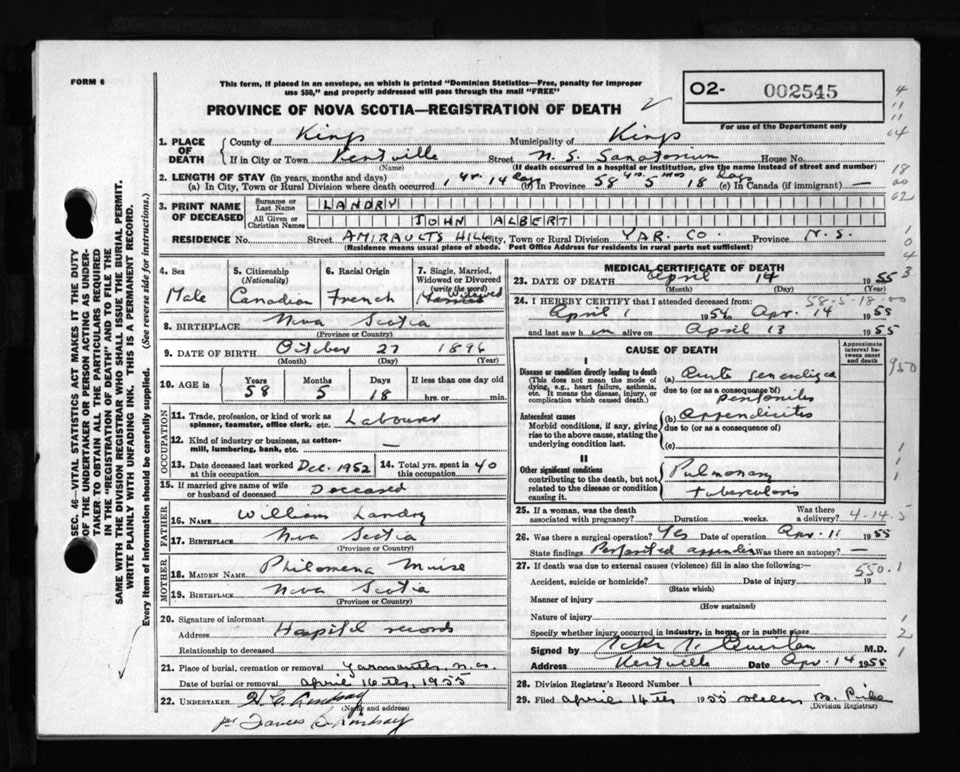 FORM 6
This form, if placed in an envelope, on which is printed "Dominion Statistics—Free, penalty for improper
use $50," and properly addressed will pass through the mail "FREE"
PROVINCE OF NOVA SCOTIA—REGISTRATION OF DEATH
02- 002545
For use of the Department only
SEC. 46—VITAL STATISTICS ACT MAKES IT THE DUTY
OF THE UNDERTAKER OR PERSON ACTING AS UNDER-
TAKER TO OBTAIN ALL THE PARTICULARS REQUIRED
IN THE "REGISTRATION OF DEATH" AND TO FILE THE
SAME WITH THE DIVISION REGISTRAR WHO SHALL ISSUE THE BURIAL PERMIT.
WRITE PLAINLY WITH UNFADING INK. THIS IS A PERMANENT RECORD.
Every item of information should be carefully supplied. (See reverse side for instructions.)
1. PLACE OF DEATH
County of Kings Municipality of Kings
If in City or Town Kentville Street N. S. Sanatorium House No.
(Name) (If death occurred in a hospital or institution, give the name instead of street and number)
2. LENGTH OF STAY (in years, months and days)
(a) In City, Town or Rural Division where death occurred 1 yr. 14 days (b) In Province 58 yrs 5 mos 18 days (c) In Canada (if immigrant) —
3. PRINT NAME OF DECEASED
Surname or Last Name LANDRY
All Given or Christian Names JOHN ALBERT
RESIDENCE No. Street AMIRAULTS HILL City, Town or Rural Division YAR. CO. Province N.S.
(Residence means usual place of abode. Post Office Address for residents in rural parts not sufficient)
4. Sex
Male
5. Citizenship (Nationality)
Canadian
6. Racial Origin
French
7. Single, Married, Widowed or Divorced (write the word)
Widowed
8. BIRTHPLACE Nova Scotia
(Province or Country)
9. DATE OF BIRTH October 27 1896
(Month) (Day) (Year)
10. AGE in Years Months Days If less than one day old
58 5 18 hrs. or min.
OCCUPATION
11. Trade, profession, or kind of work as
spinner, teamster, office clerk, etc. Labourer
12. Kind of industry or business, as cotton-
mill, lumbering, bank, etc. —
13. Date deceased last worked at this occupation Dec. 1952
14. Total yrs. spent in this occupation 40
15. If married give name of wife
or husband of deceased Deceased
FATHER
16. NAME William Landry
17. BIRTHPLACE Nova Scotia
(Province or Country)
MOTHER
18. MAIDEN NAME Philomena Muise
19. BIRTHPLACE Nova Scotia
(Province or Country)
20. Signature of informant
Address Hospital records
Relationship to deceased
21. Place of burial, cremation or removal Yarmouth, N.S.
Date of burial or removal April 16th, 1955
22. UNDERTAKER
(Name and address)
MEDICAL CERTIFICATE OF DEATH
23. DATE OF DEATH April 14 1955
(Month) (Day) (Year)
58-5-18-00
24. I HEREBY CERTIFY that I attended deceased from:
April 1 1954 to Apr. 14 1955
and last saw h im alive on April 13 1955
CAUSE OF DEATH
Approximate interval between onset and death
I
Disease or condition directly leading to death
(This does not mean the mode of dying, e.g., heart failure, asthenia, etc. It means the disease, injury, or complication which caused death.)
(a) Acute generalized
due to (or as a consequence of)
peritonitis
Antecedent causes
Morbid conditions, if any, giving rise to the above cause, stating the underlying condition last.
(b) Appendicitis
due to (or as a consequence of)
(c)
II
Other significant conditions
contributing to the death, but not related to the disease or condition causing it.
Pulmonary
tuberculosis
25. If a woman, was the death associated with pregnancy? Duration weeks. Was there a delivery? 4-14-5
26. Was there a surgical operation? Yes Date of operation Apr. 11 1955
State findings Perforated appendix Was there an autopsy? —
27. If death was due to external causes (violence) fill in also the following:—
550.1
Accident, suicide or homicide? Date of injury 19
(State which)
Manner of injury
(How sustained)
Nature of injury
Specify whether injury occurred in industry, in home, or in public place
Signed by M.D.
Address Kentville Date Apr. 14 1955
28. Division Registrar's Record Number 1
29. Filed April 14th 1955 Helen B. Pike
(Division Registrar)